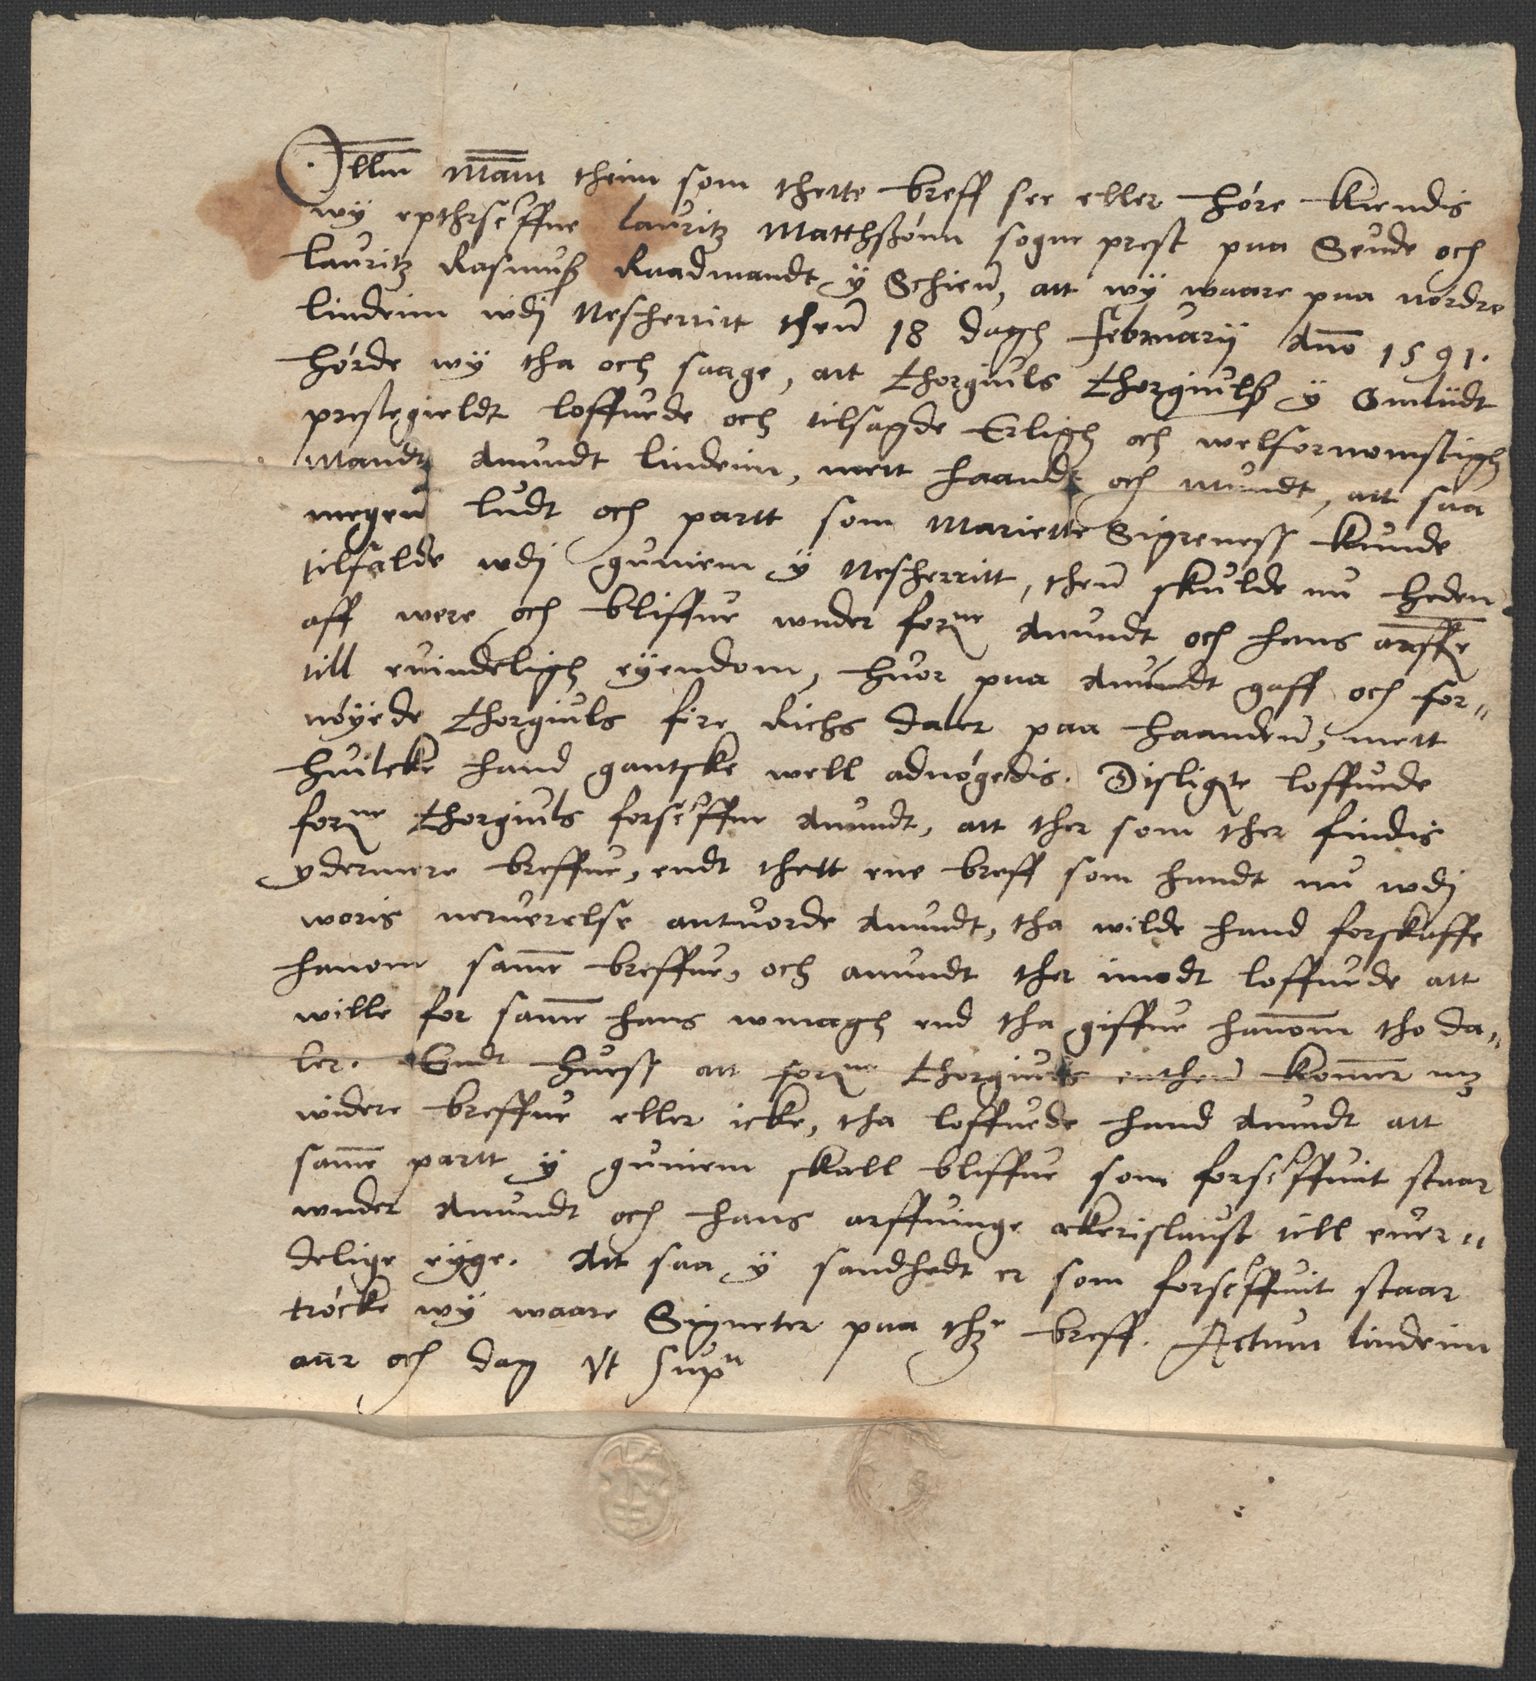 Allm Mām theim som thette breff see eller høre Kiendis
wy epthrscffne lauritz Matthssønn sogne prest paa Seude och
lauritz Rasmuß Raadmandt y Schien, att wy waare paa nordre
lindeim wdj Nescherritt then 18 dagh februarij Ano 1591.
hørde wy tha och saage, att Thorgiuls Thorgiulß y Smiidt
prestegieldt loffuede och tilsagde Erligh och welfornomstigh
Mandt Anundt lindeim, mett haandt och mundt, att saa
megen ludt och partt som Mariette Sigreness kunde
tilfalde wdj guniem y Nescherritt, then skulde nu heden
aff were och bliffue wnder forne Anundt och hans arffe
till euindeligh eyendom, huor paa Anundt gaff och for„
nøyede Thorgiuls fire Richs daler paa haanden, mett
huilcke hand gantske well adnøgedis. Disligte loffuede
forne Thorgiuls forscffne Anundt, att ther som ther findis
ydermere breffue, endt thett ene breff som handt nu wdj
woris neruerelse antuorde Anundt, tha wilde hand forskaffe
hanom same breffue, och anundt ther imodt loffuede att
wille for same hans wmagh end tha giffue hanom tho da„
ler. Endt huess att forne Thorgiuls enthen komer mz
widere breffue eller icke, tha loffuede hand Anundt att
same partt y guniem skall bliffue som forscffuit staar
wnder Anundt och hans arffuinge akerislaust till euer„
delige eyge. Att saa y sandhedt er som forscffuit staar
trøcke wy waare Signeter paa thz breff. Actum lindeim
aar och dag Vt supra